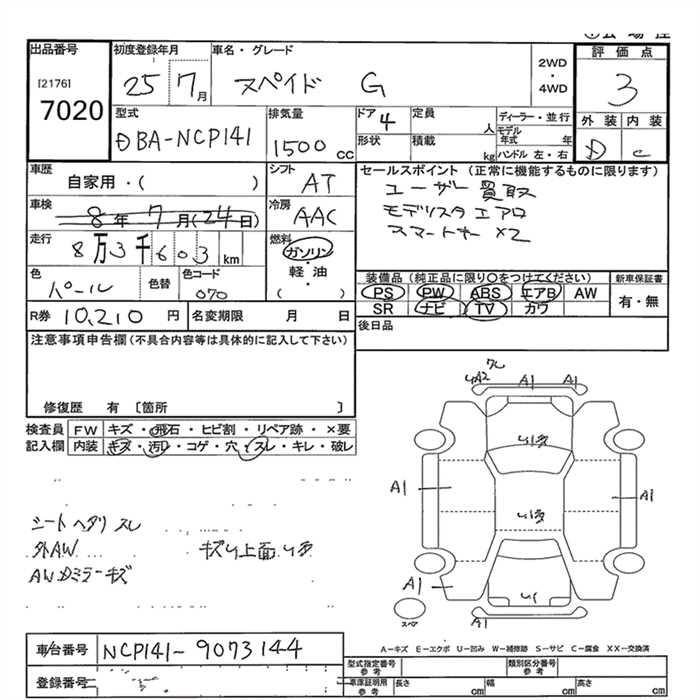 出品番号
[2176]
7020
初度登録年月
25 7月
車名・グレード
スペイド G
2WD
・
4WD
評価点
3
外装 内装
D c
型式
DBA-NCP141
排気量
1500 CC
ドア
4
定員
人
形状
積載
kg
ディーラー・並行
モデル年式 年
ハンドル 左・右
車歴
自家用・( )
シフト
AT
車検
8年7月(24日)
冷房
AAC
走行
8万3千603km
燃料
ガソリン
軽油
・
( )
色
パール
色替
色コード
070
R券 10,210円
名変期限 月 日
セールスポイント (正常に機能するものに限ります)
ユーザー買取
モデリスタエアロ
スマートキー×2
装備品 (純正品に限り○をつけてください)
PS PW ABS エアB AW
SR ナビ TV カワ
新車保証書
有・無
後日品
注意事項申告欄(不具合内容等は具体的に記入して下さい)
修復歴 有 〔箇所 〕
検査員記入欄
FW キズ・飛石・ヒビ割・リペア跡・×要
内装 キズ・汚レ・コゲ・穴・スレ・キレ・破レ
シートヘタリ スレ
外AW
AWDミラーキズ
A2 A1 A1
A1
A1
A1
A1
A-キズ E-エクボ U-凹み W-補修跡 S-サビ C-腐食 XX-交換済
車台番号 NCP141-9073144
登録番号
型式指定番号参考
類別区分番号参考
車庫証明用参考
長さ cm
幅 cm
高さ cm